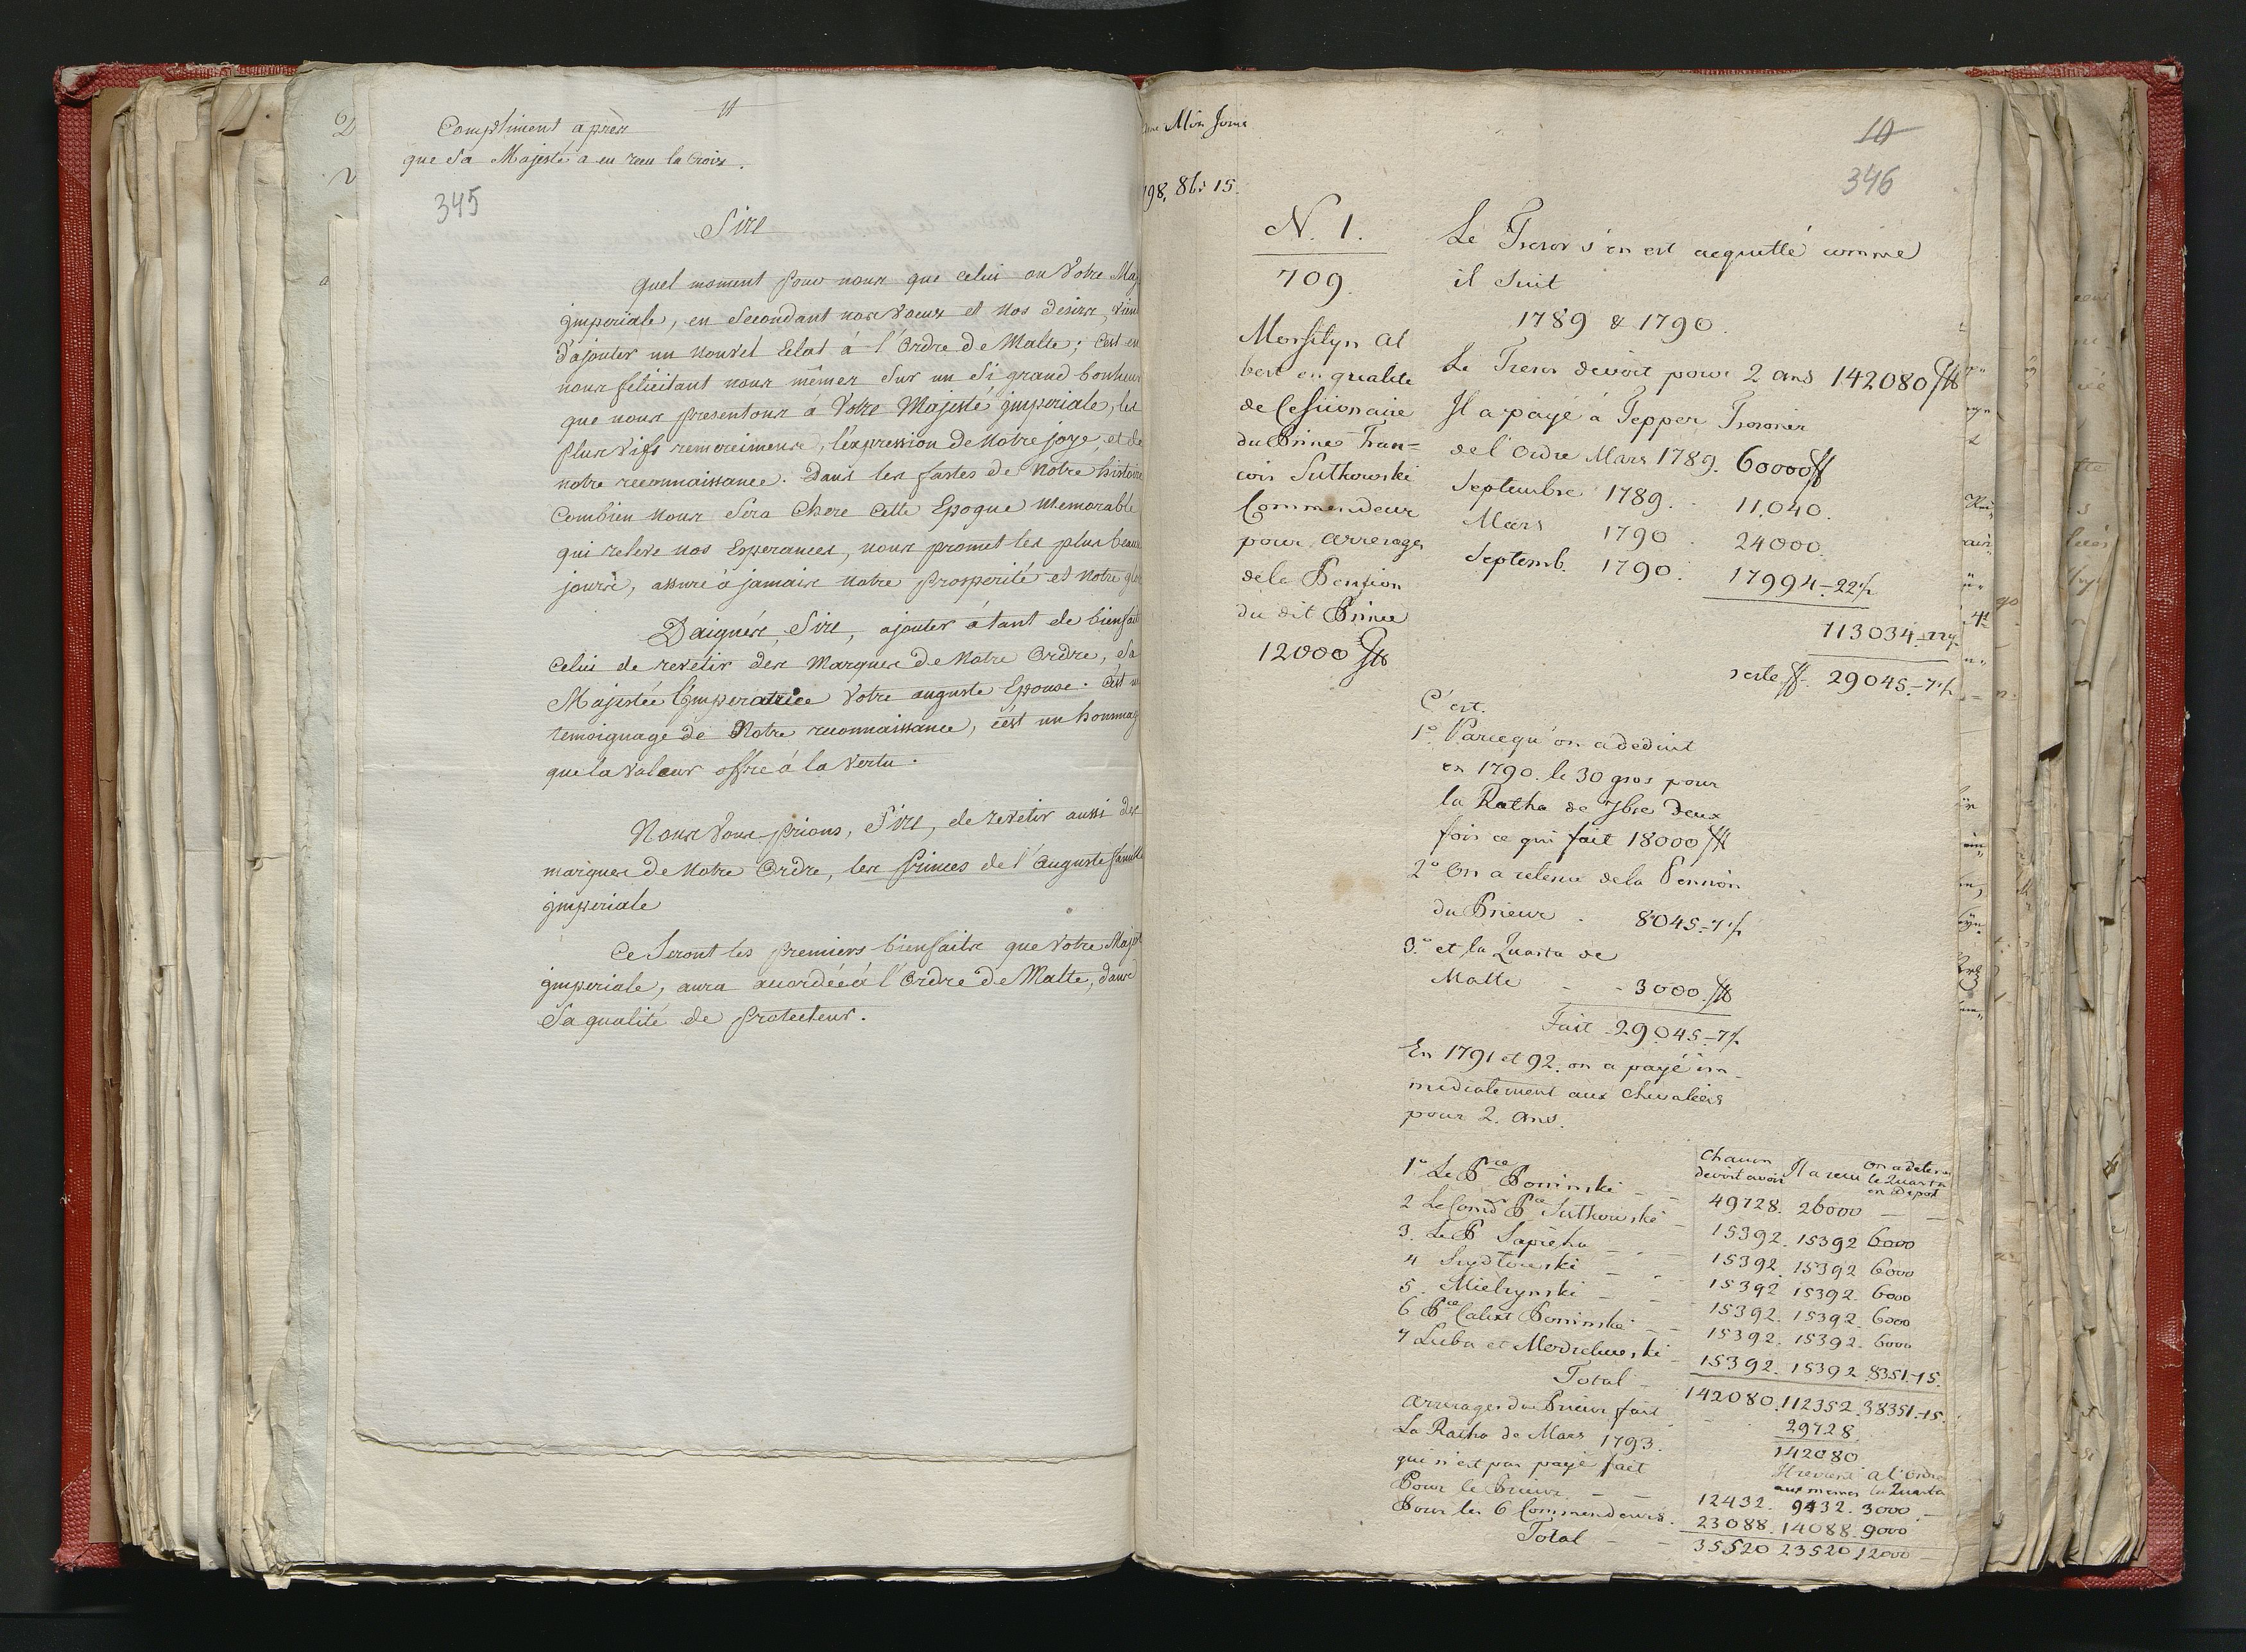 11
Compliment après
que Sa Majesté a eu recu la Croix.
345
Sire
Quel moment pour nous que celui ou Votre Maj
jmperiale, en Secondant nos voeux et Nos desirs, vient
d'ajouter un nouvel Eclat à l'Ordre de Malte; C'est en
nous felicitant nous mêmes Sur un Si grand bonheur
que nous presentons à Votre Majesté jmperiale, les
plus vifs remercimens, l'expression de Notre joye, et de
notre reconnaissance. Dans les fastes de Notre histoire
Combien Nous Sera Chere Cette Epoque Memorable
qui releve nos Esperances, nous promet les plus beaux
jours, assure à jamais Notre Prosperité et Notre glo
Daignés, Sire, ajouter à tant de bienfaits
Celui de revetir des Marques de Notre Ordre, Sa
Majestée l'jmperatrice Votre auguste Epouse. C'est un
temoignage de Notre reconnaissance, c'est un hommag
que la Valeur offre à la Vertu.
Nous Vous prions, Sire, de revetir aussi des
marques de Notre Ordre, les Princes de l'auguste famille
jmperiale
Ce Seront les premiers bienfaits que Votre Majest
jmperiale, aura accordée à l'Ordre de Malte, dans
Sa qualité de Protecteur.
10
346
198, 8br 15.
N. 1.
709.
Morsztyn Al
bert en qualite
de Cessionaire
du Prince Fran=
cois Sutkowski
Commendeur
pour arrerages
de la Pension
du dit Prince
12000 #
Le Tresor s'en est acquitté comme
il Suit
1789 & 1790.
Le Tresor devoit pour 2 ans 142080 #
Il a payé à Tepper Tresorier
de l'Ordre Mars 1789. 60000 #
Septembre 1789. 11,040.
Mars 1790. 24000.
Septemb. 1790. 17994 - 22 1/2
113034 - 22 1/2
reste # 29045. - 7 1/2
C'est.
1° Parcequ'on a deduit
en 1790. le 30 gros pour
la Ratha de 7bre Deux
fois ce qui fait 18000 #
2° On a retenu de la Pension
du Prieur . 8045. - 7 1/2
3.° et la Quarta de
Malte - - 3000. #
Fait - 29.045. - 7 1/2
En 1791 et 92. on a payé im_
mediatement aux Chevaliers
pour 2. Ans.
Chacun devoit avoir Il a recu On a detenu le Quarta en depot
1° Le Pce Poninski - - 49728. 26000 - -
2 Le Comdr Pce Sutkowski - 15392. 15392 6000
3. Le P Sapieha - - - 15392. 15392 6000
4 - - 15392 15392. 6000
5. Mielzynski - - 15392. 15392. 6000
6 Pce Calixt Poninski - - 15392. 15392. 6000
7 Luba et - 15392. 15392. 8351. - 15.
Total - 142080. 112352. 38351. - 15.
Arrerages du Prieur fait - 29728.
142080
La Ratha de Mars 1793.
qui n'est pas payé fait
Il revient à l'Ordre
aux memes la Quarta
Pour le Prieur - - 12432. 9432. 3000. -
Pour les 6 Commendeurs. 23088. 14088. 9000
Total - - 35520 23520 12000 -